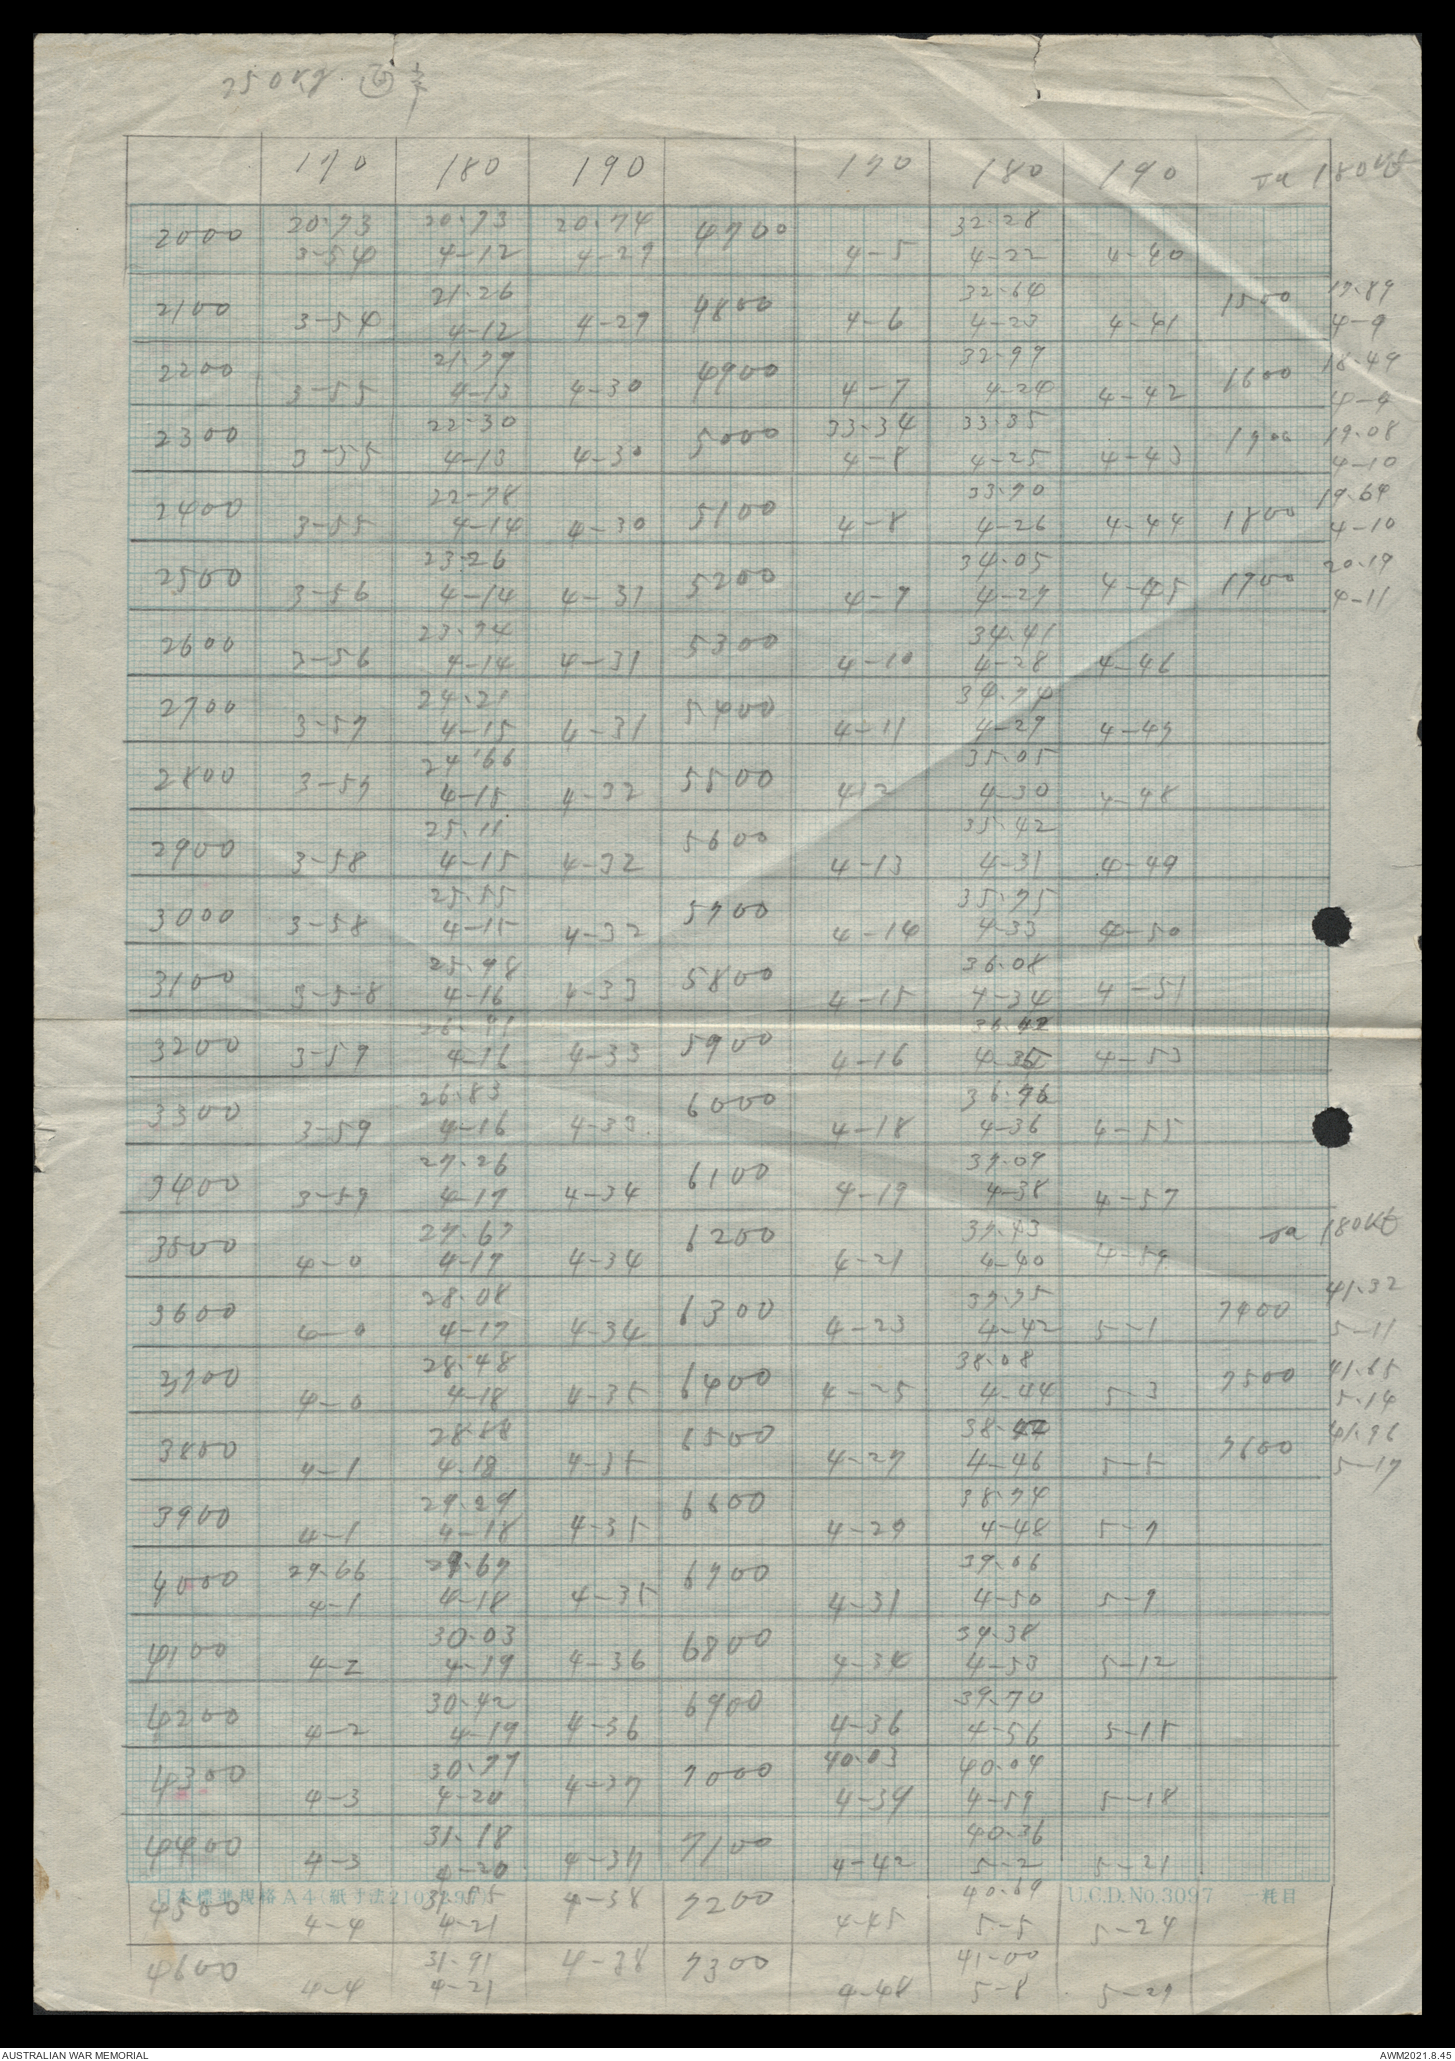 250kg
170 180 190 170 180 190 180Kt
2000 20.73 20.73 20.74 4700 32.28
3-54 4-12 4-29 4-5 4-22 4-40
2100 21.26 4800 32.64 1500 17.89
3-54 4-12 4-29 4-6 4-23 4-41 4-9
2200 21.79 4900 32.99 1600 18.49
3-55 4-13 4-30 4-7 4-24 4-42 4-9
2300 22.30 5000 33.34 33.35 19.08
3-55 4-13 4-30 4-8 4-25 4-43 4-10
2400 22-78 5100 33.70 1800 19.64
3-55 4-14 4-30 4-8 4-26 4-44 4-10
2500 23.26 5200 34.05 1900 20.19
3-56 4-14 4-31 4-9 4-27 4-45 4-11
2600 23.74 5300 34.41
3-56 4-14 4-31 4-10 4-28 4-46
2700 24.21 5400 34.74
3-57 4-15 4-31 4-11 4-29 4-47
2800 24.66 5500 35.05
3-57 4-15 4-32 412 4-30 4-48
2900 25.11 5600 35.42
3-58 4-15 4-32 4-13 4-31 4-49
3000 25.55 5700 35.75
3-58 4-15 4-32 4-14 4-33 4-50
3100 25.98 5800 36.08
3-5-8 4-16 4-33 4-15 4-34 4-51
3200 26.41 5900 36.42
3-59 4-16 4-33 4-16 4-35 4-53
3300 26.83 6000 36.76
3-59 4-16 4-33 4-18 4-36 4-55
3400 27.26 6100 37.09
3-59 4-17 4-34 4-19 4-38 4-57
3500 27.67 6200 37.43 180Kt
4-0 4-17 4-34 4-21 4-40 4-59
3600 28.08 6300 37.75 7400 41.32
4-0 4-17 4-34 4-23 4-42 5-1 5-11
3700 28.48 6400 38.08 7500 41.65
4-0 4-18 4-35 4-25 4-44 5-3 5.14
3800 28.88 6500 38.42 7600 41.96
4-1 4.18 4-35 4-27 4-46 5-5 5-17
3900 29.29 6600 38.74
4-1 4-18 4-35 4-29 4-48 5-7
4000 29.66 29.67 6700 39.06
4-1 4-18 4-35 4-31 4-50 5-9
4100 30.03 6800 39.38
4-2 4-19 4-36 4-34 4-53 5-12
4200 30.42 6900 39.70
4-2 4-19 4-36 4-36 4-56 5-15
4300 30.77 7000 40.03 40.04
4-3 4-20 4-37 4-39 4-59 5-18
4400 31.18 7100 40.36
4-3 4-20 4-37 4-42 5-2 5-21
日本標準規格A4(紙寸法210×297) U.C.D.No.3097 一粍目
4500 31.55 7200 40.69
4-4 4-21 4-38 4-45 5-5 5-24
4600 31.91 7300 41-00
4-4 4-21 4-38 4-48 5-8 5-27
AUSTRALIAN WAR MEMORIAL AWM2021.8.45